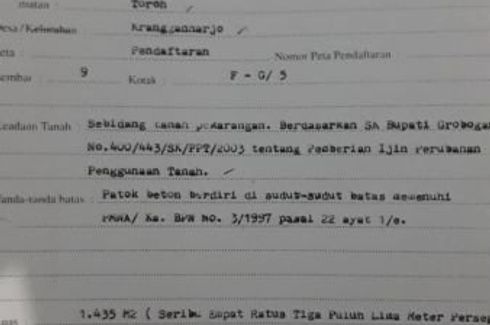 matan : Toroh
Desa / Kelurahan : Krangganharjo
Peta : Pendaftaran Nomor Peta Pendaftaran
Lembar : 9 Kotak : F - G/ 5
Keadaan Tanah : Sebidang tanah pekarangan. Berdasarkan SK Bupati Grobogan
No.400/443/SK/PPT/2003 tentang Pemberian Ijin Perubahan
Penggunaan Tanah.
Tanda-tanda batas : Patok beton berdiri di sudut-sudut batas memenuhi
PMNA/ Ka. BPN No. 3/1997 pasal 22 ayat 1/e.
1.435 M2 ( Seribu Empat Ratus Tiga Puluh Lima Meter Perseg